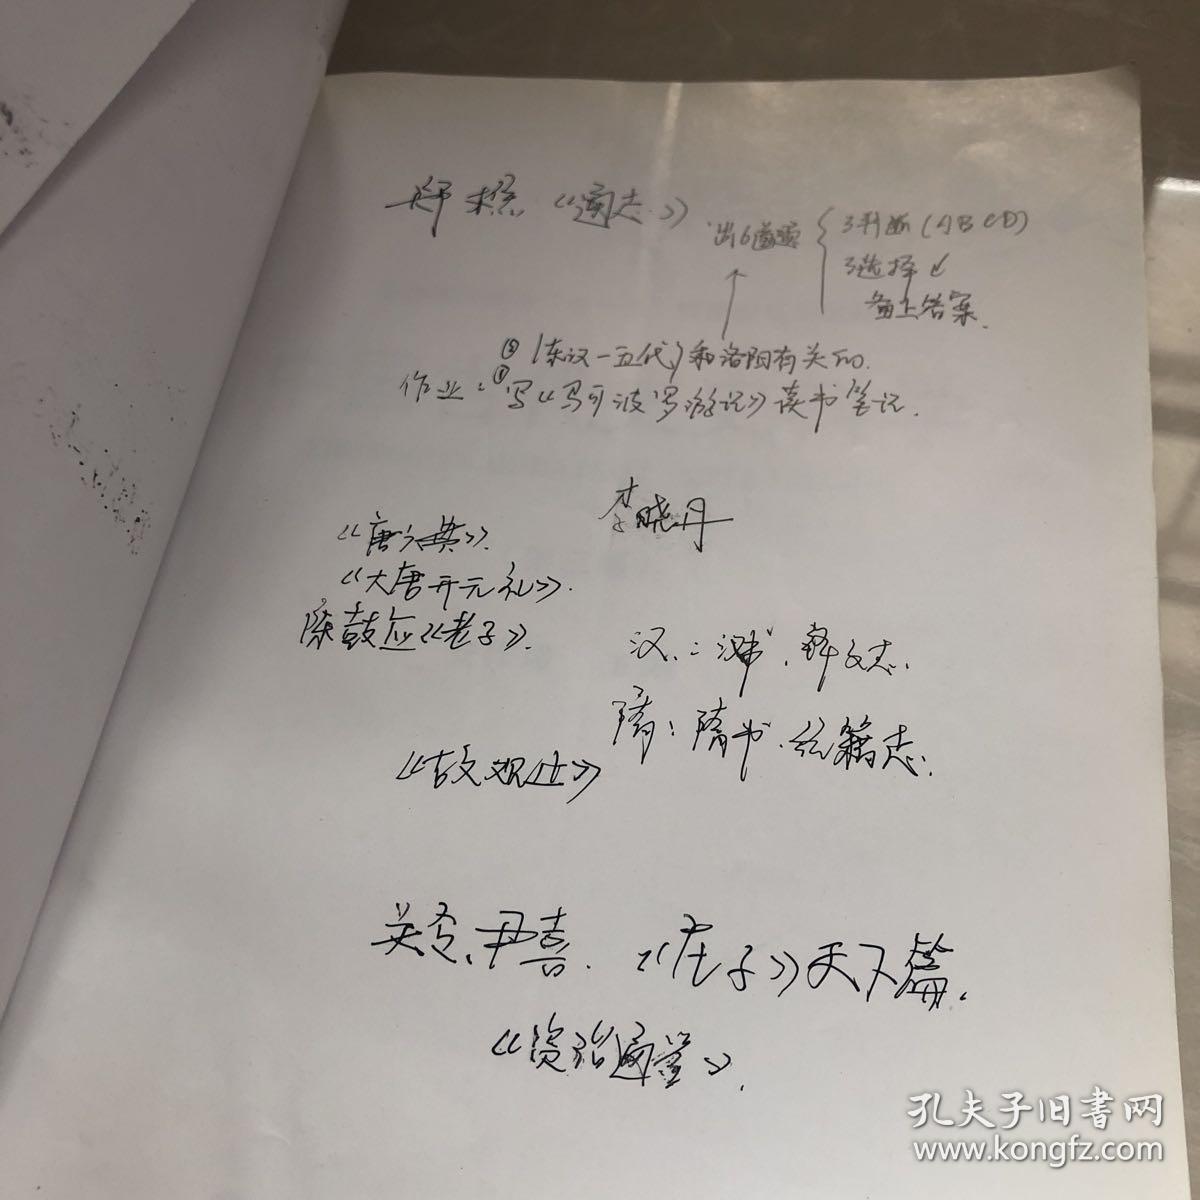 郑樵《通志》
出6道题 { 3判断（ABCD）
3选择
备上答案.
② {东汉—五代} 和洛阳有关的.
作业：①写《马可波罗游记》读书笔记.
李晓丹
《唐六典》.
《大唐开元礼》.
陈鼓应《老子》.
汉：汉书.艺文志.
隋：隋书.经籍志.
关令尹喜.《庄子》天下篇.
《资治通鉴》.
孔夫子旧书网
www.kongfz.com